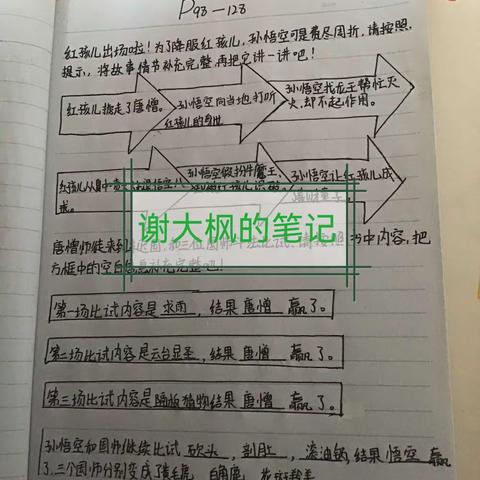 P98-128
红孩儿出场啦!为了降服红孩儿,孙悟空可是费尽周折,请按照
提示,将故事情节补充完整,再把它讲一讲吧!
红孩儿掳走了唐僧。
孙悟空向当地打听
红孩儿的身世
孙悟空找龙王帮忙灭
火,却不起作用。
孙悟空假扮牛魔王,
孙悟空让红孩儿成
谢大枫的笔记
唐僧师徒来到 内容,把
方框中的空白 补充完整吧!
第一场比试内容是求雨,结果唐僧赢了。
第二场比试内容是云台显圣,结果唐僧赢了。
第三场比试内容是隔板猜物结果唐僧赢了。
孙悟空和国师继续比试砍头,剖肚,滚油锅,结果悟空赢
了,三个国师分别变成了黄毛虎 白角鹿